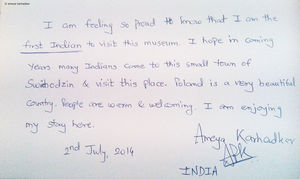 I am feeling so proud to know that I am the
first Indian to visit this museum. I hope in coming
years many Indians come to this small town of
Swiebodzin & visit this place. Poland is a very beautiful
country. People are warm & welcoming. I am enjoying
my stay here.
Ameya Karhadkar
2nd July, 2014
APK
INDIA